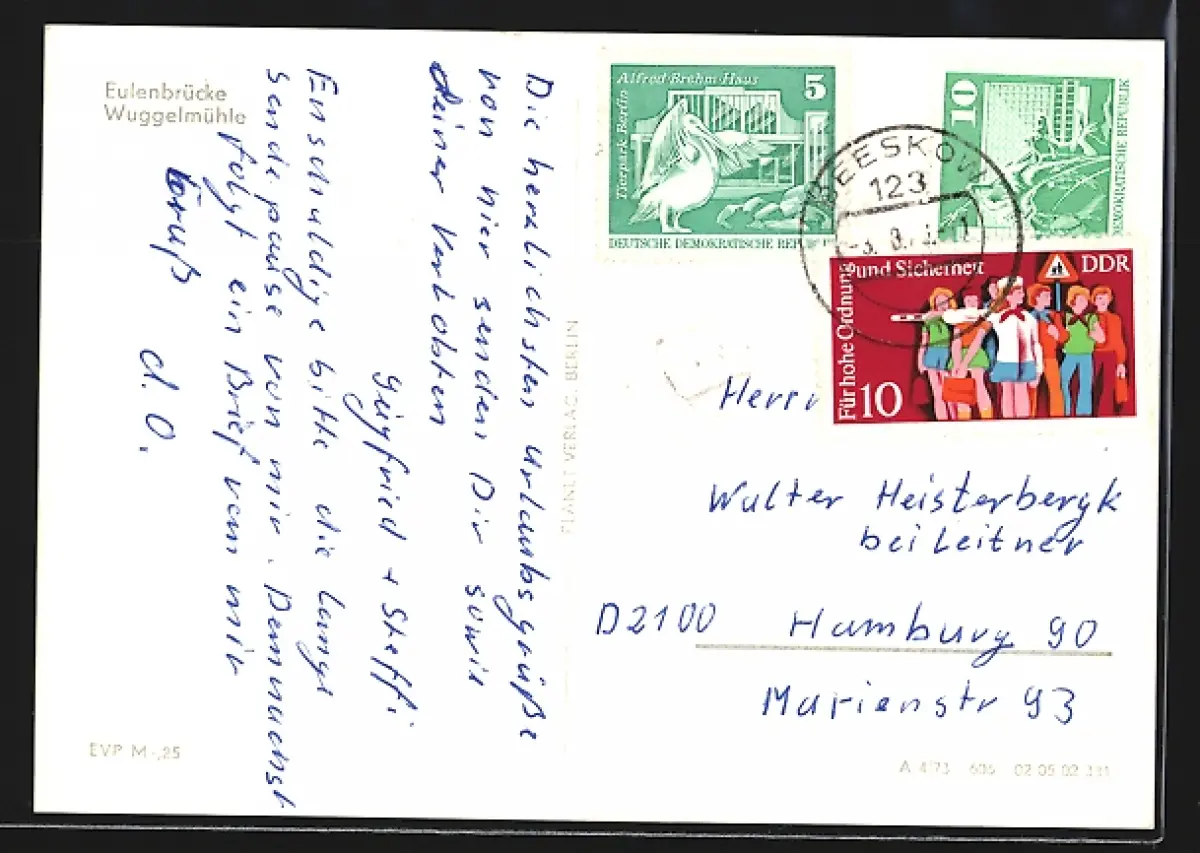 Eulenbrücke
Wuggelmühle
Die herzlichsten Urlaubsgrüße
von hier senden Dir sowie
Deiner Verlobten
Siegfried + Steffi
Enschuldige bitte die lange
Sendepause von mir. Demnächst
folgt ein Brief von mir
Gruß
d. O.
EVP M -,25
PLANET VERLAG, BERLIN
Alfred-Brehm-Haus
5
Tierpark Berlin
DEUTSCHE DEMOKRATISCHE REPUBL
10
DEMOKRATISCHE REPUBLIK
BEESKOW
123
Für hohe Ordnung
und Sicherheit
DDR
10
Herrn
Walter Heisterbergk
bei Leitner
D2100 Hamburg 90
Marienstr 93
A 4/73 606 02 05 02 331